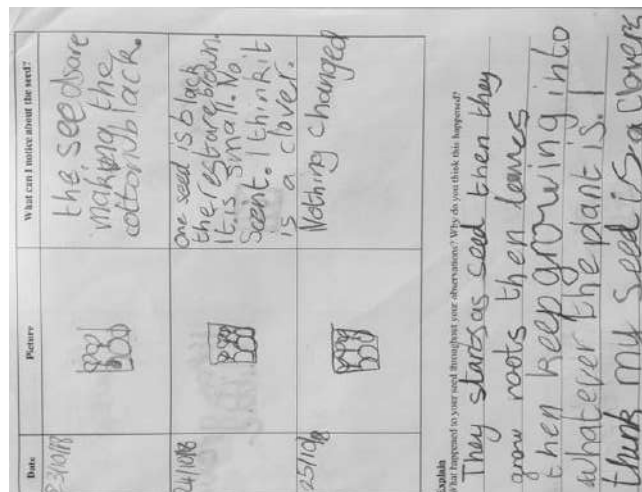 Date
Picture
What can I notice about the seed?
23/10/18
the seeds are
making the
cotton black.
24/10/18
one seed is black
the rest are brown.
It is small. No
Scent. I think it
is a clover.
25/10/18
Nothing changed
Explain
What happened to your seed throughout your observations? Why do you think this happened?
They starts as seed then they
grow roots then leaves
then keep growing into
whatever the plant is. I
think my seed is a clover